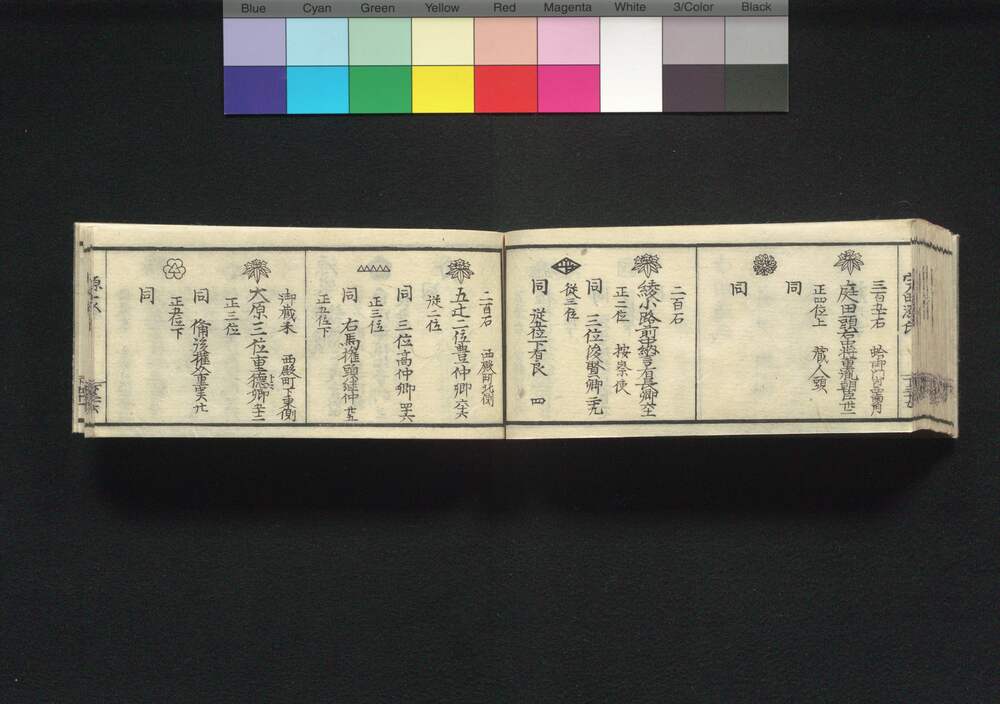 Blue Cyan Green Yellow Red Magenta White 3/Color Black
三百五十石
庭田頭右中将重胤朝臣
正四位上 蔵人頭
同
同
二百石
綾小路前中納言有長卿
正二位 按察使
同 三位俊賢卿
従三位
同 従五位下有良 四
二百石 西殿町北側
五辻二位豊仲卿
従二位
同 三位高仲卿 四十六
正三位
同 右馬権頭継仲
正五位下
御蔵米 西殿町下東側
大原三位重徳卿
正三位
同 備後権介重実
正五位下
同